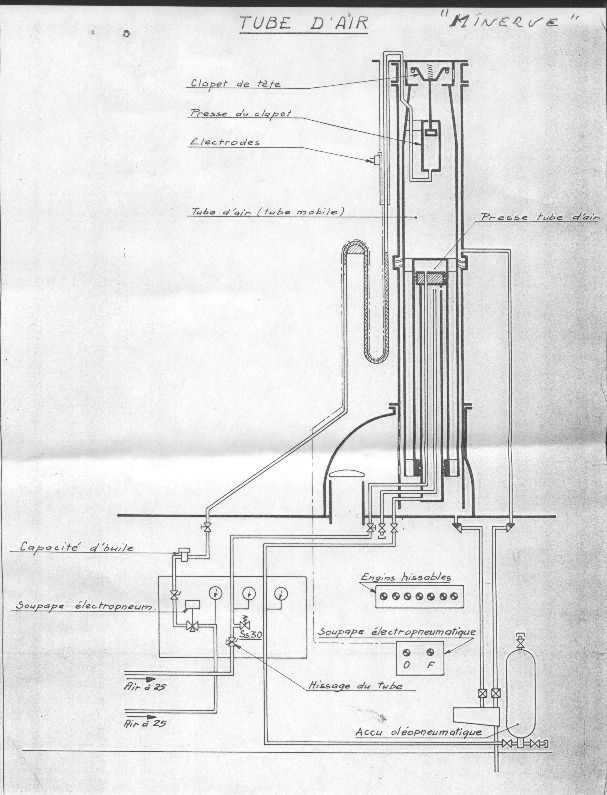 TUBE D'AIR
"MINERVE"
Clapet de tête
Presse du clapet
Electrodes
Tube d'air (tube mobile)
Presse tube d'air
Capacité d'huile
Engins hissables
Soupape électropneum.
Ss30
Soupape électropneumatique
O F
Air à 25
Hissage du tube
Air à 25
Accu oléopneumatique